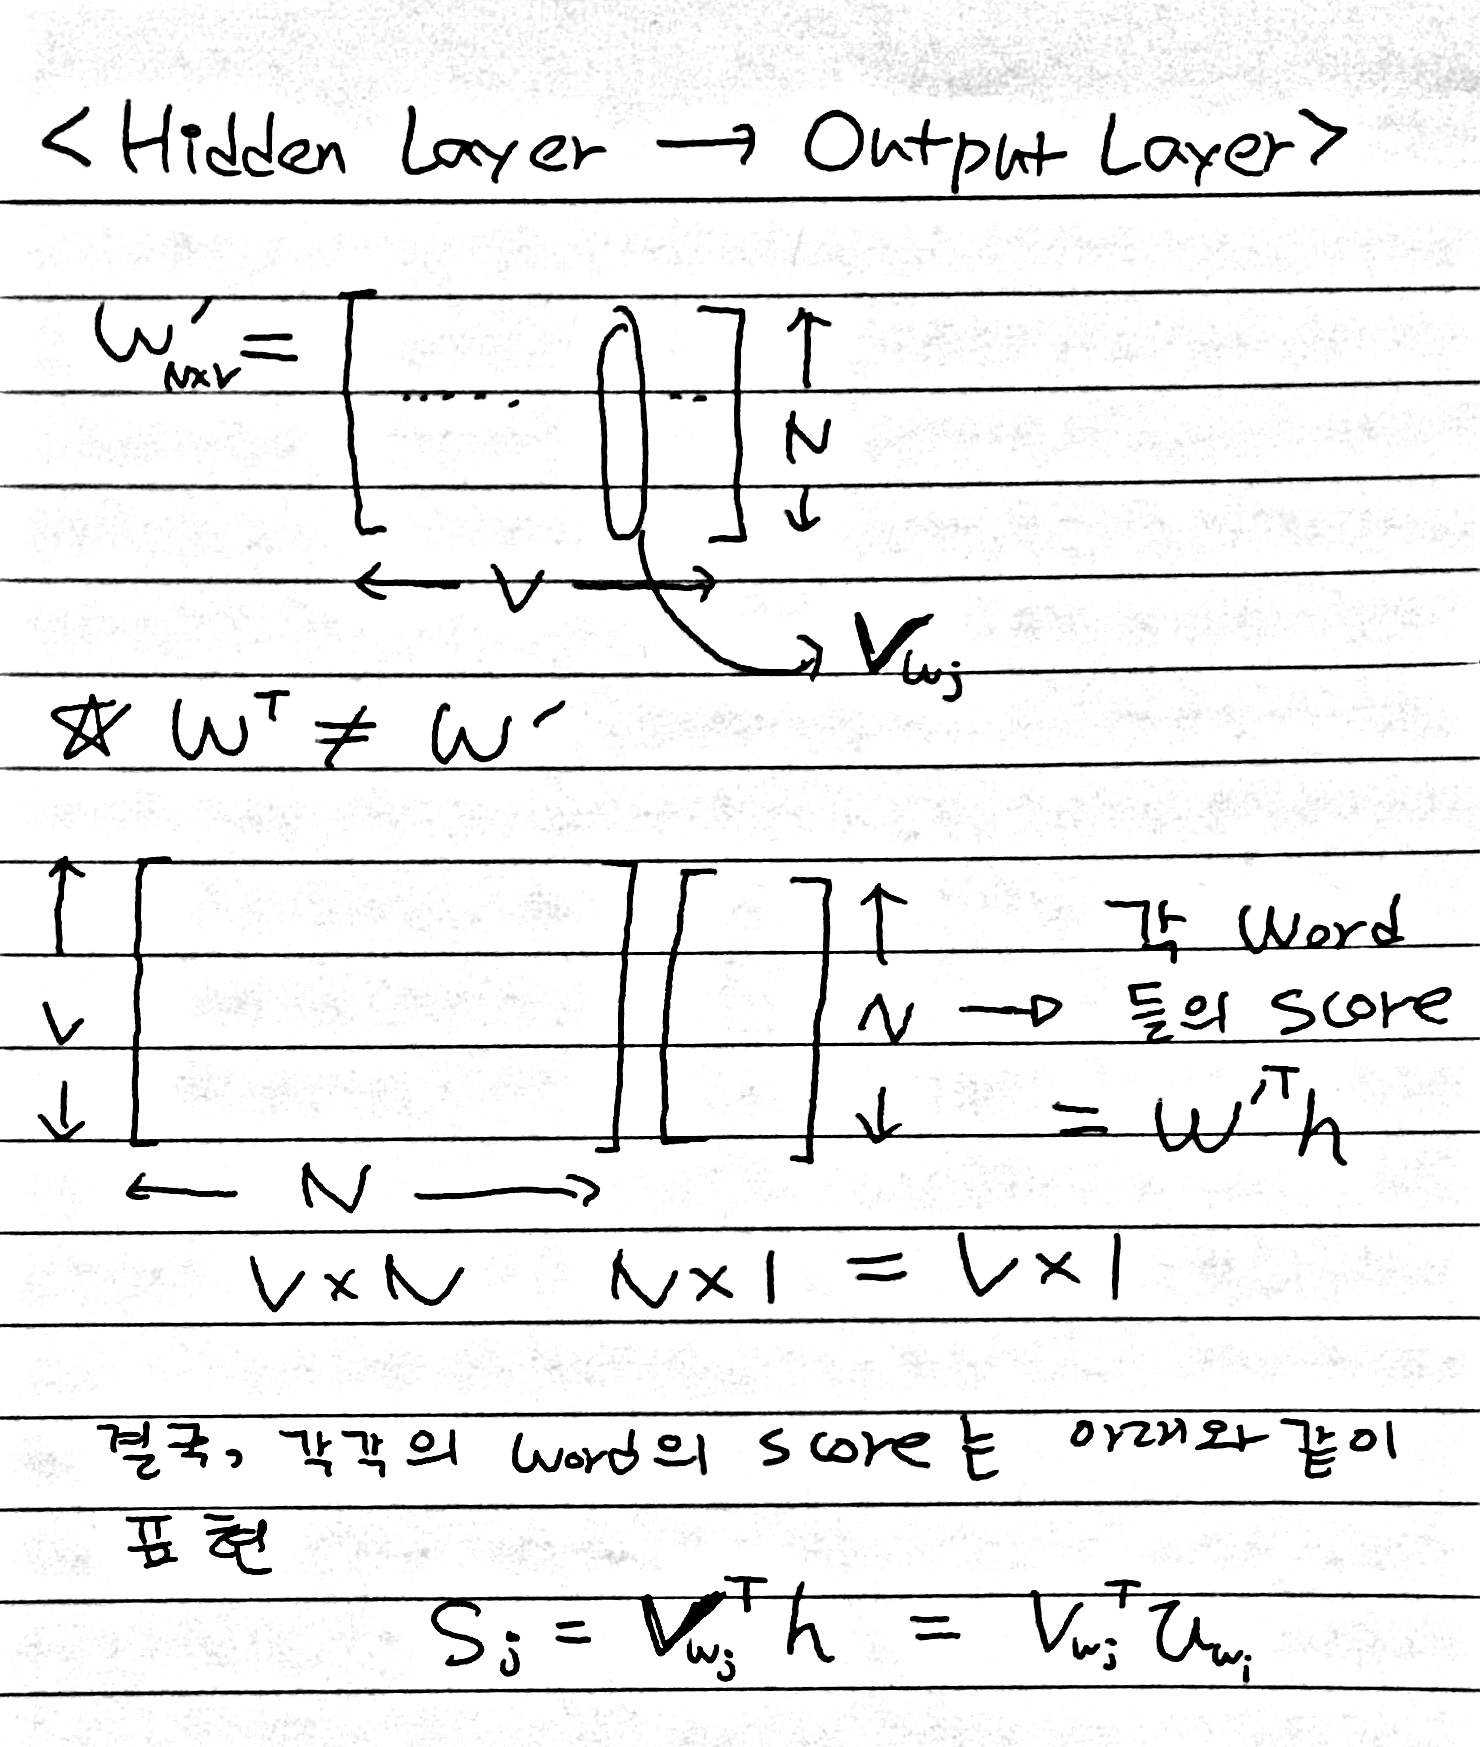 <Hidden Layer → Output Layer>
W'N×V = [ ..... .. ] ↑ N ↓
← V → Vwj
☆ Wᵀ ≠ W'
↑ V ↓ [ ] [ ] ↑ N ↓ → 각 word
들의 score
= W'ᵀh
← N →
V×N N×1 = V×1
결국, 각각의 word의 score는 아래와 같이
표현
Sj = Vwjᵀ h = Vwjᵀ Uwi